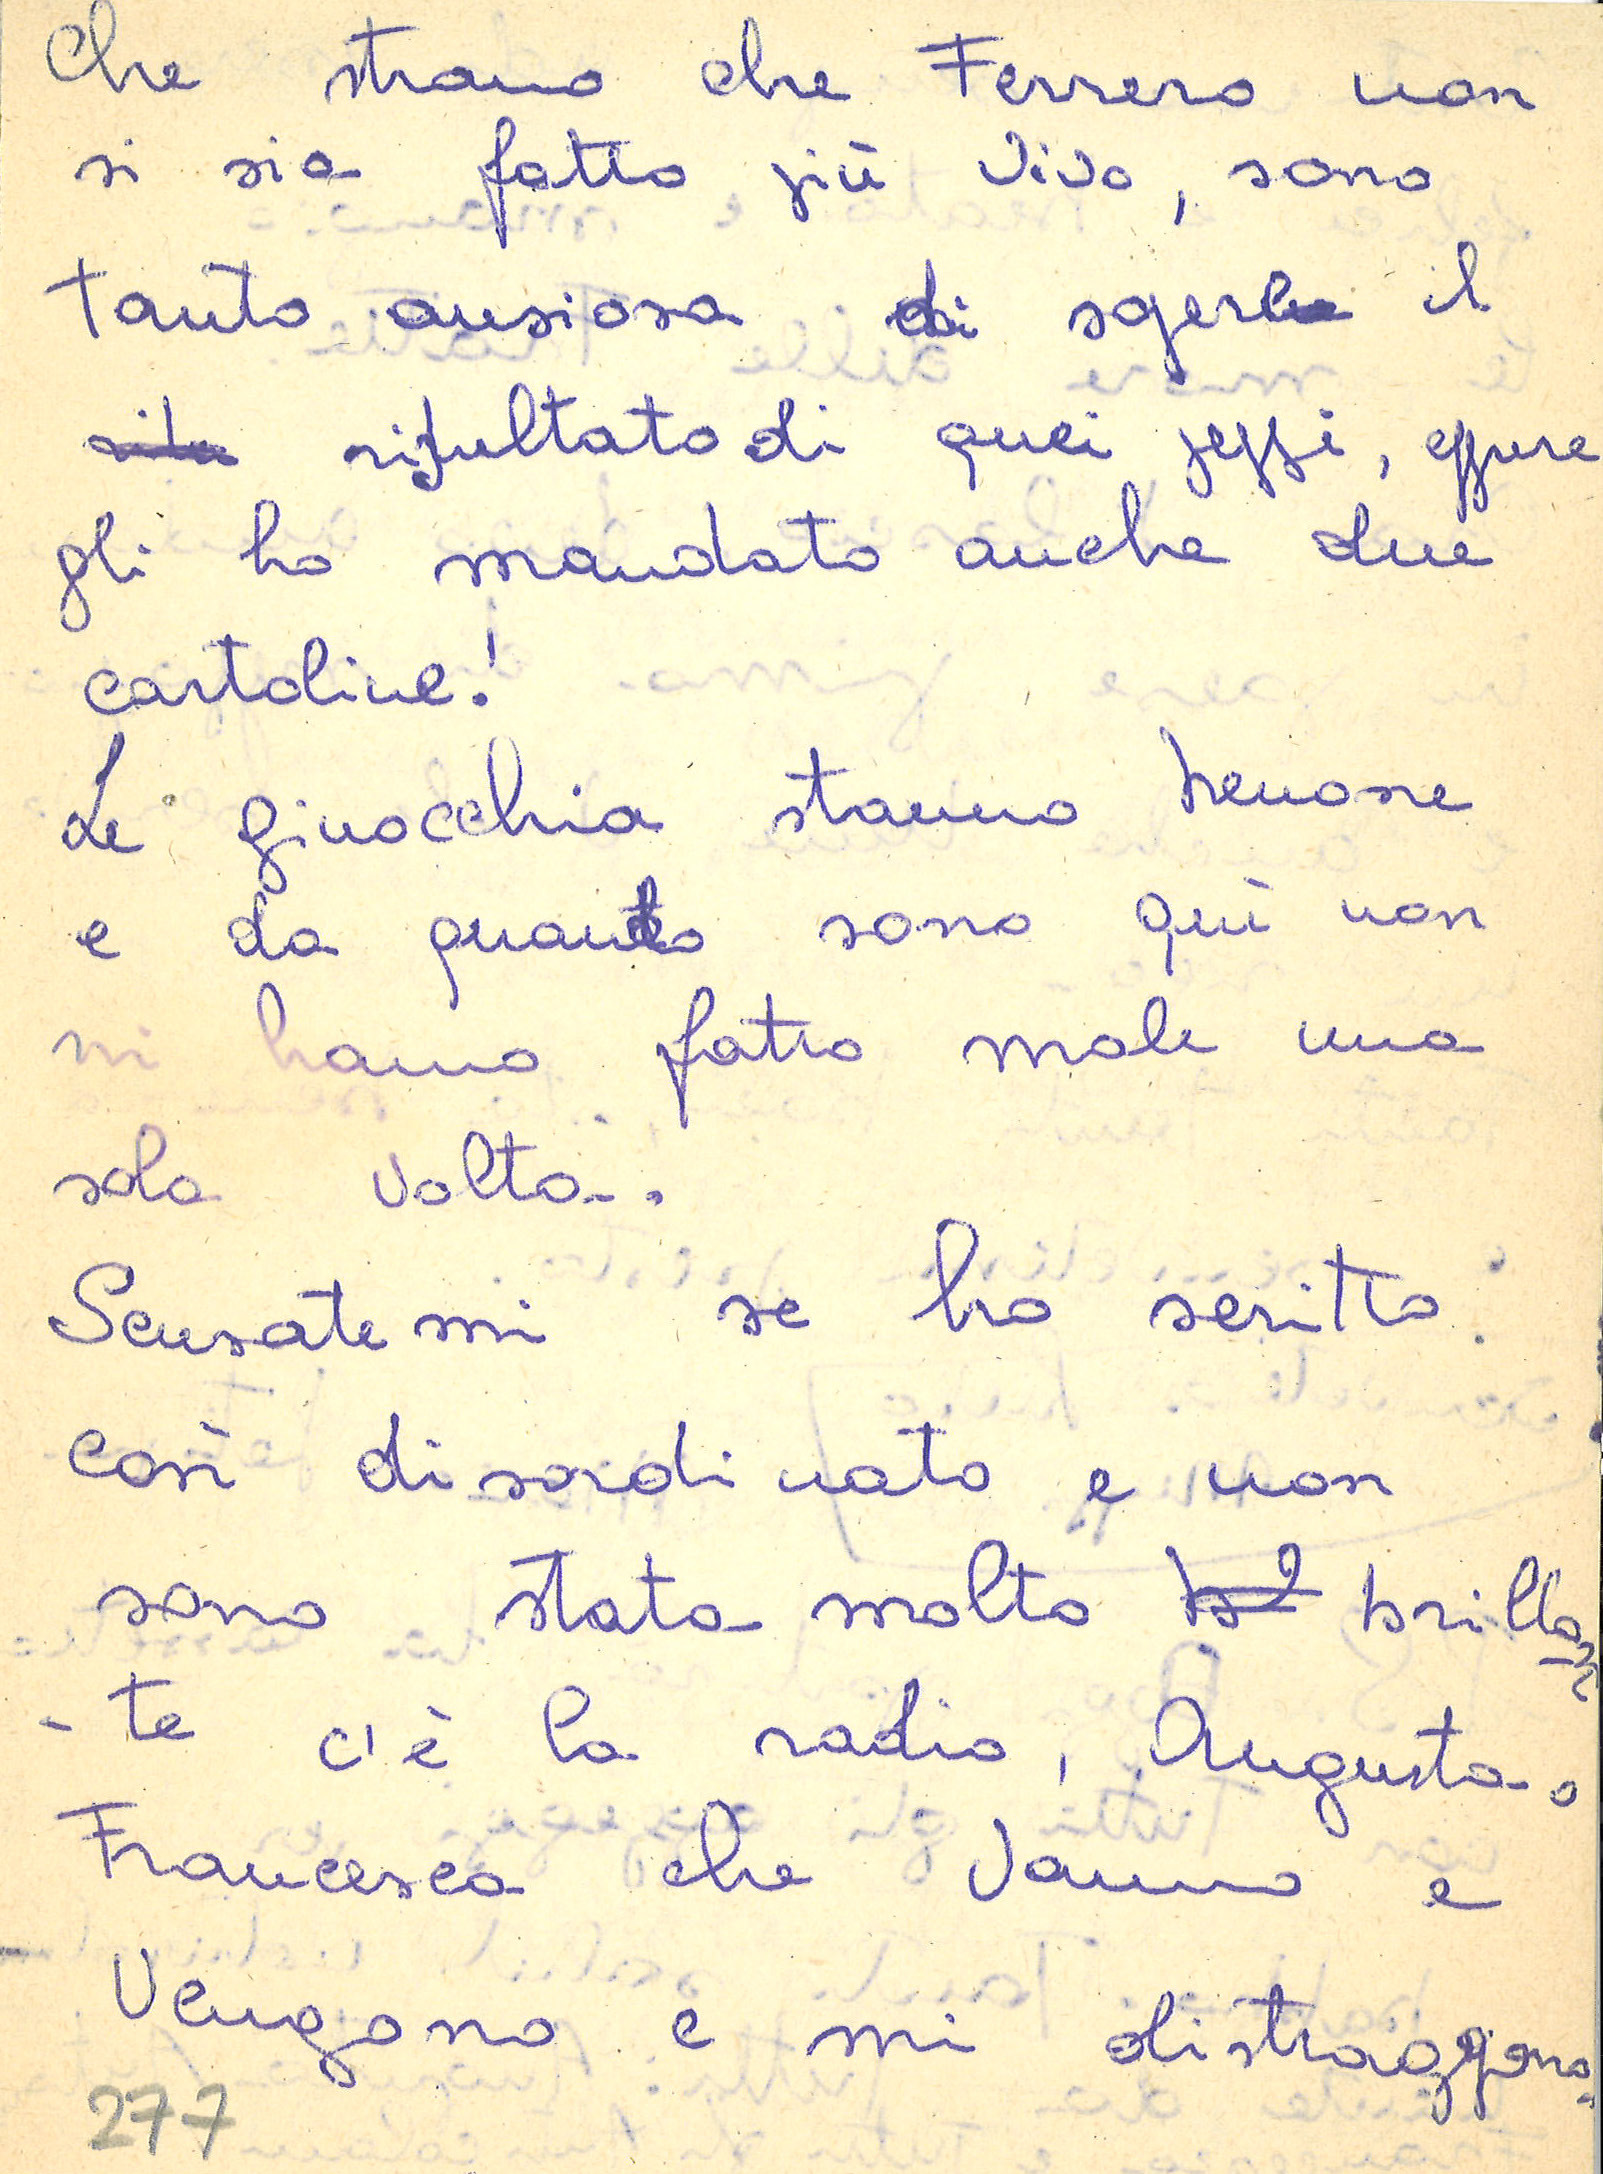 Che strano che Ferrero non
si sia fatto più vivo, sono
tanto ansiosa di
risultato di quei pezzi, eppure
gli ho mandato anche due
cartoline!
Le ginocchia stanno benone
e da quando sono quì non
mi hanno fatto male una
sola volta.
Scusatemi se ho scritto
così disordinato e non
sono stata molto brillan
-te c'è la radio, Augusta.
Francesca che vanno e
vengono e mi distraggono.
277